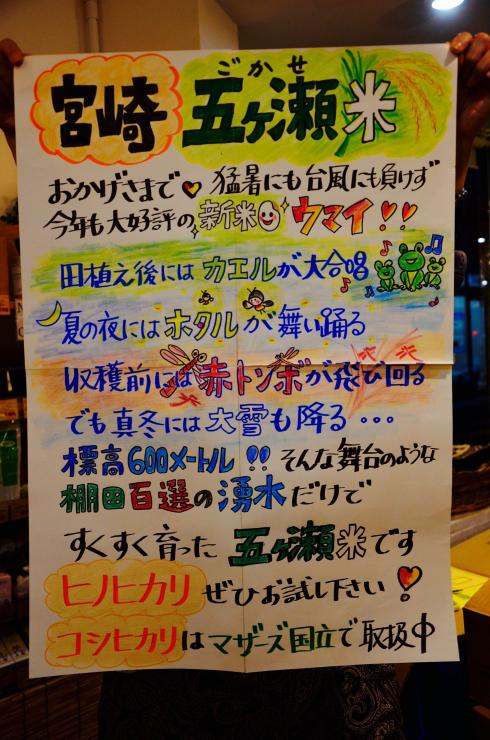 ごかせ
宮崎 五ヶ瀬米
おかげさまで♥ 猛暑にも台風にも負けず
今年も大好評の新米 ウマイ!!
田植え後には カエルが大合唱
夏の夜には ホタル が 舞い踊る
収穫前には赤トンボが飛び回る
でも真冬には大雪も降る・・・
標高600メートル!! そんな舞台のような
棚田百選の湧水だけで
すくすく育った 五ヶ瀬米です
ヒノヒカリ ぜひお試し下さい!
コシヒカリはマザーズ国立で取扱中